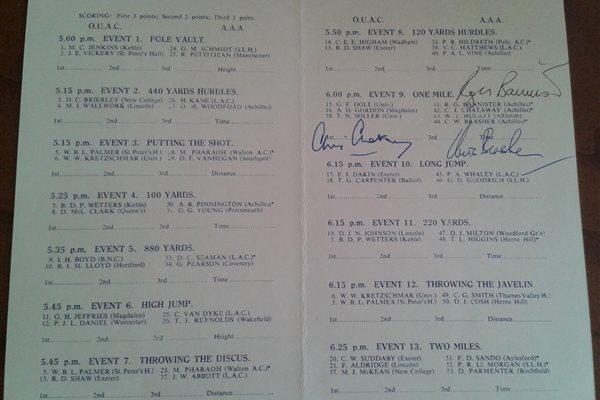 SCORING: First 3 points; Second 2 points; Third 1 point.
O.U.A.C. A.A.A.
5.00 p.m. EVENT 1. POLE VAULT.
1. M. C. JENKINS (Keble) 24. G. M. SCHMIDT (S.L.H.)
2. J. E. VICKERY (St. Peter's Hall) 25. R. PETITJEAN (Manchester)
1st 2nd 3rd Height
5.15 p.m. EVENT 2. 440 YARDS HURDLES.
3. D. C. BRIERLEY (New College) 26. H. KANE (L.A.C.)
44. M. J. WALLWORK (Lincoln) 27. D. WOODFORD (Achilles)
1st 2nd 3rd Time
5.15 p.m. EVENT 3. PUTTING THE SHOT.
5. W. B. L. PALMER (St. Peter's H.) 28. M. PHARAOH (Walton A.C.)*
6. W. W. KRETZSCHMAR (Univ.) 29. D. F. VANHEGAN (Southgate)
1st 2nd 3rd Distance
5.25 p.m. EVENT 4. 100 YARDS.
7. B. D. P. WETTERS (Keble) 30. A. R. PINNINGTON (Achilles)*
8. D. McL. CLARK (Queen's) 31. O. G. YOUNG (Portsmouth)
1st 2nd 3rd Time
5.35 p.m. EVENT 5. 880 YARDS.
9. I. H. BOYD (B.N.C.) 33. D. C. SEAMAN (L.A.C.)*
10. R. J. M. LLOYD (Hertford) 34. G. PEARSON (Coventry)
1st 2nd 3rd Time
5.45 p.m. EVENT 6. HIGH JUMP.
11. G. H. JEFFRIES (Magdalen) 35. C. VAN DYKE (L.A.C.)
12. P. J. L. DANIEL (Worcester) 36. T. J. REYNOLDS (Wakefield)
1st 2nd 3rd Height
5.45 p.m. EVENT 7. THROWING THE DISCUS.
5. W. B. L. PALMER (St. Peter's H.) 28. M. PHARAOH (Walton A.C.)*
13. R. D. SHAW (Exeter) 37. J. W. ABBOTT (L.A.C.)
1st 2nd 3rd Distance
O.U.A.C. A.A.A.
5.50 p.m. EVENT 8. 120 YARDS HURDLES.
14. C. E. E. HIGHAM (Wadham) 38. P. B. HILDRETH (Poly. A.C.)*
13. R. D. SHAW (Exeter) 39. V. C. MATTHEWS (L.A.C.)
40. P. A. L. VINE (Achilles)
1st 2nd 3rd Time
6.00 p.m. EVENT 9. ONE MILE.
Roger Bannister
15. G. F. DOLE (Univ.) 41. R. G. BANNISTER (Achilles)*
16. A. D. GORDON (Magdalen) 42. C. J. CHATAWAY (Achilles)*
18. T. N. MILLER (Univ.) 43. W. T. HULATT (Alfreton)
44. C. W. BRASHER (Achilles)*
1st 2nd 3rd Time
Chris Chataway
Chris Brasher
6.15 p.m. EVENT 10. LONG JUMP.
17. F. J. DAKIN (Exeter) 45. P. A. WHALEY (L.A.C.)
18. T. G. CARPENTER (Balliol) 46. G. D. GOODRICH (S.L.H.)
1st 2nd 3rd Distance
6.15 p.m. EVENT 11. 220 YARDS.
19. D. J. N. JOHNSON (Lincoln) 47. D. J. MILTON (Woodford Gr'n)
7. B. D. P. WETTERS (Keble) 48. T. L. HIGGINS (Herne Hill)*
1st 2nd 3rd Time
6.15 p.m. EVENT 12. THROWING THE JAVELIN.
6. W. W. KRETZSCHMAR (Univ.) 49. C. G. SMITH (Thames Valley H.)
5. W. B. L. PALMER (St. Peter's H.) 50. D. J. COSH (Herne Hill)
1st 2nd 3rd Distance
6.25 p.m. EVENT 13. TWO MILES.
20. C. W. SUDDABY (Exeter) 51. F. D. SANDO (Aylesford)*
21. F. ALDRIDGE (Lincoln) 52. P. R. Ll. MORGAN (S.L.H.)*
57. M. J. McKEAN (New College) 53. D. PARMENTER (Birchfield)
1st 2nd 3rd Time